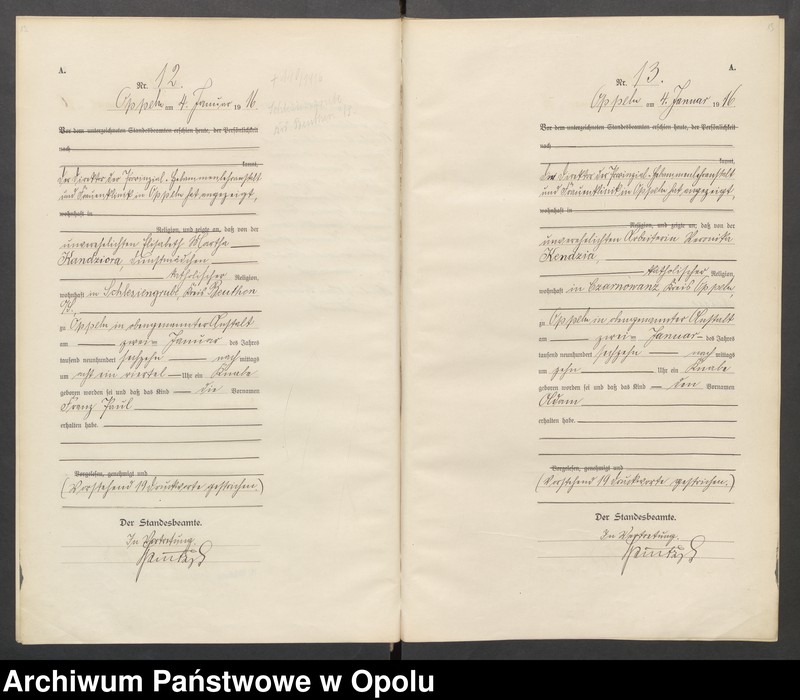 A.
Nr. 12.
Oppeln am 4. Januar 1916.
Vor dem unterzeichneten Standesbeamten erschien heute, der Persönlichkeit
nach
kannt,
der Direktor der Provinzial-Hebammenlehranstalt
und Frauenklinik in Oppeln hat angezeigt,
wohnhaft in
Religion, und zeigte an, daß von der
unverehelichten Elisabeth Martha
Kandziora, Dienstmädchen
katholischer Religion,
wohnhaft in Schlesiengrube, Kreis Beuthen
O/S.,
zu Oppeln in obengenannter Anstalt
am zwei- Januar des Jahres
tausend neunhundert sechzehn nachmittags
um acht ein viertel Uhr ein Knabe
geboren worden sei und daß das Kind die Vornamen
Franz Paul
erhalten habe.
Vorgelesen, genehmigt und
(Vorstehend 19 Druckworte gestrichen.)
Der Standesbeamte.
In Vertretung.
A.
Nr. 13.
Oppeln am 4. Januar 1916
Vor dem unterzeichneten Standesbeamten erschien heute, der Persönlichkeit
nach
kannt,
Der Direktor der Provinzial-Hebammenlehranstalt
und Frauenklinik in Oppeln hat angezeigt,
wohnhaft in
Religion, und zeigte an, daß von der
unverehelichten Arbeiterin Veronika
Kendzia,
katholischer Religion,
wohnhaft in Czarnowanz, Kreis Oppeln,
zu Oppeln in obengenannter Anstalt
am zwei- Januar des Jahres
tausend neunhundert sechzehn nachmittags
um zehn Uhr ein Knabe
geboren worden sei und daß das Kind den Vornamen
Adam
erhalten habe.
Vorgelesen, genehmigt und
(Vorstehend 19 Druckworte gestrichen.)
Der Standesbeamte.
In Vertretung.
Archiwum Państwowe w Opolu